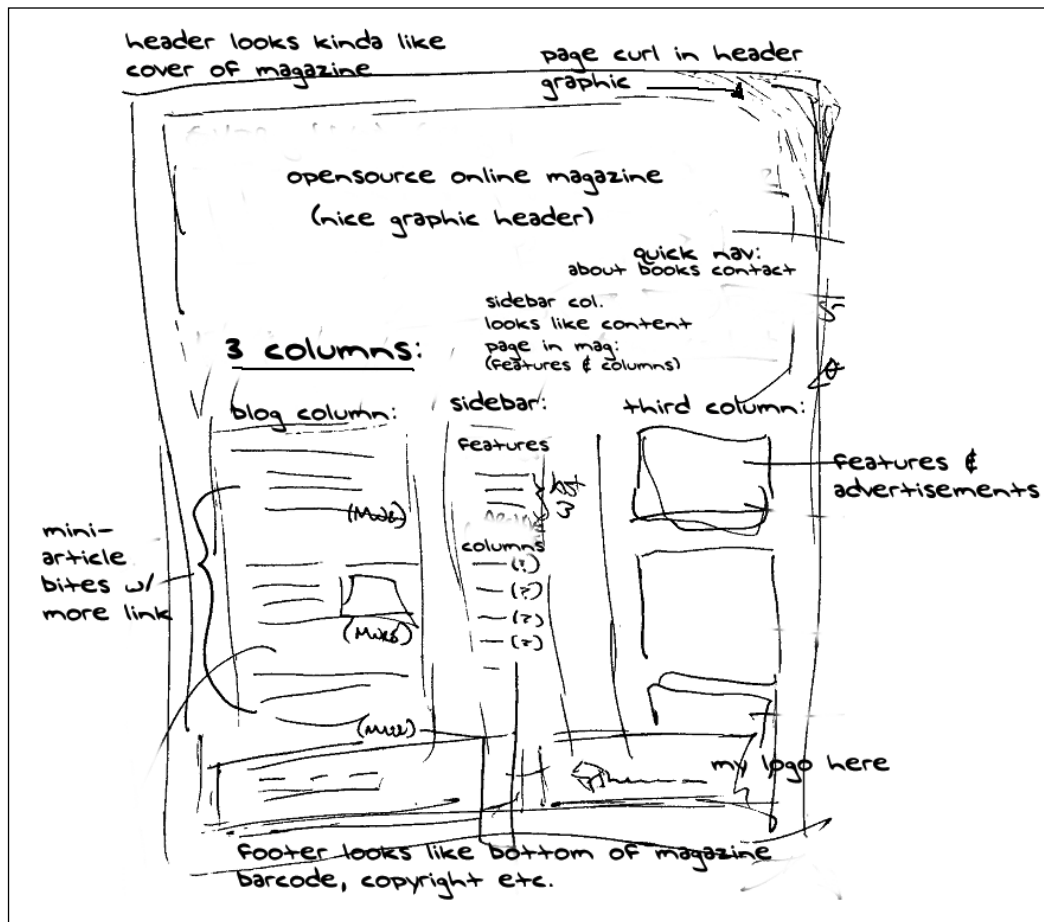 header looks kinda like
cover of magazine
page curl in header
graphic
opensource online magazine
(nice graphic header)
quick nav:
about books contact
sidebar col.
looks like content
page in mag:
(features & columns)
3 columns:
blog column:
sidebar:
third column:
features
features &
advertisements
columns
(?)
(?)
(?)
(?)
mini-
article
bites w/
more link
my logo here
footer looks like bottom of magazine
barcode, copyright etc.